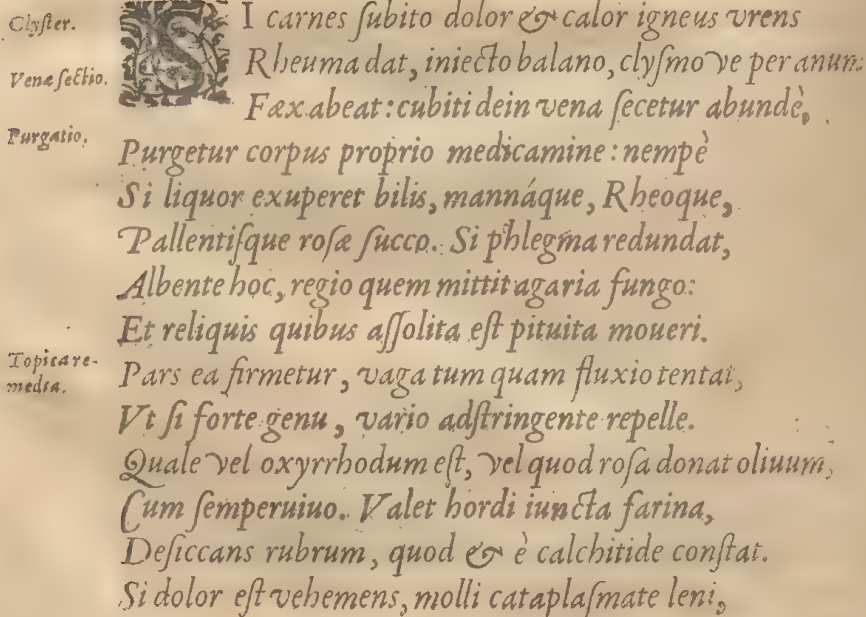 Clyſter.
SI carnes ſubito dolor & calor igneus vrens
Venæ ſectio.
Rheuma dat, iniecto balano, clyſmo ve per anum
Fæx abeat: cubiti dein vena ſecetur abundè,
Purgatio.
Purgetur corpus proprio medicamine: nempè
Si liquor exuperet bilis, mannáque, Rheoque,
Pallentiſque roſæ ſucco. Si phlegma redundat,
Albente hoc, regio quem mittit agaria fungo:
Et reliquis quibus aſſolita eſt pituita moueri.
Topica re-
media.
Pars ea firmetur, vaga tum quam fluxio tentat,
Vt ſi forte genu, vario adſtringente repelle.
Quale vel oxyrrhodum eſt, vel quod roſa donat oliuum,
Cum ſemperuiuo. Valet hordi iuncta farina,
Deſiccans rubrum, quod & è calchitide conſtat.
Si dolor eſt vehemens, molli cataplaſmate leni,